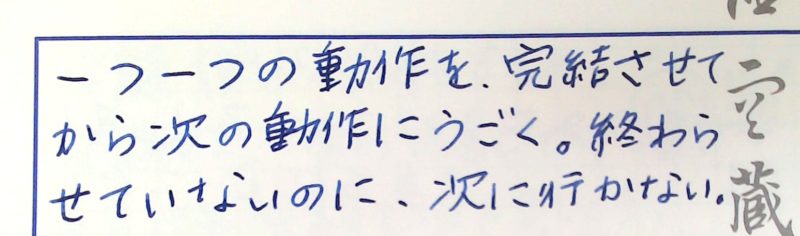 一つ一つの動作を、完結させて
から次の動作にうごく。終わら
せていないのに、次に行かない。
空蔵